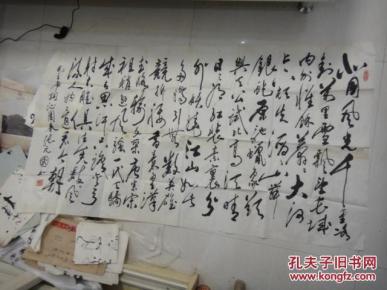 北国风光千里冰
封万里雪飘望长城
内外惟余莽莽大河
上下顿失滔滔山舞
银蛇原驰蜡象欲
与天公试比高须晴
日看红装素裹分
外妖娆江山如此
多娇引无数英雄
竞折腰惜秦皇汉
武略输文采唐宗宋
祖稍逊风骚一代天骄
成吉思汗只识弯弓
射大雕俱往矣数风
流人物还看今朝
孔夫子旧书网
KONGFZ.COM